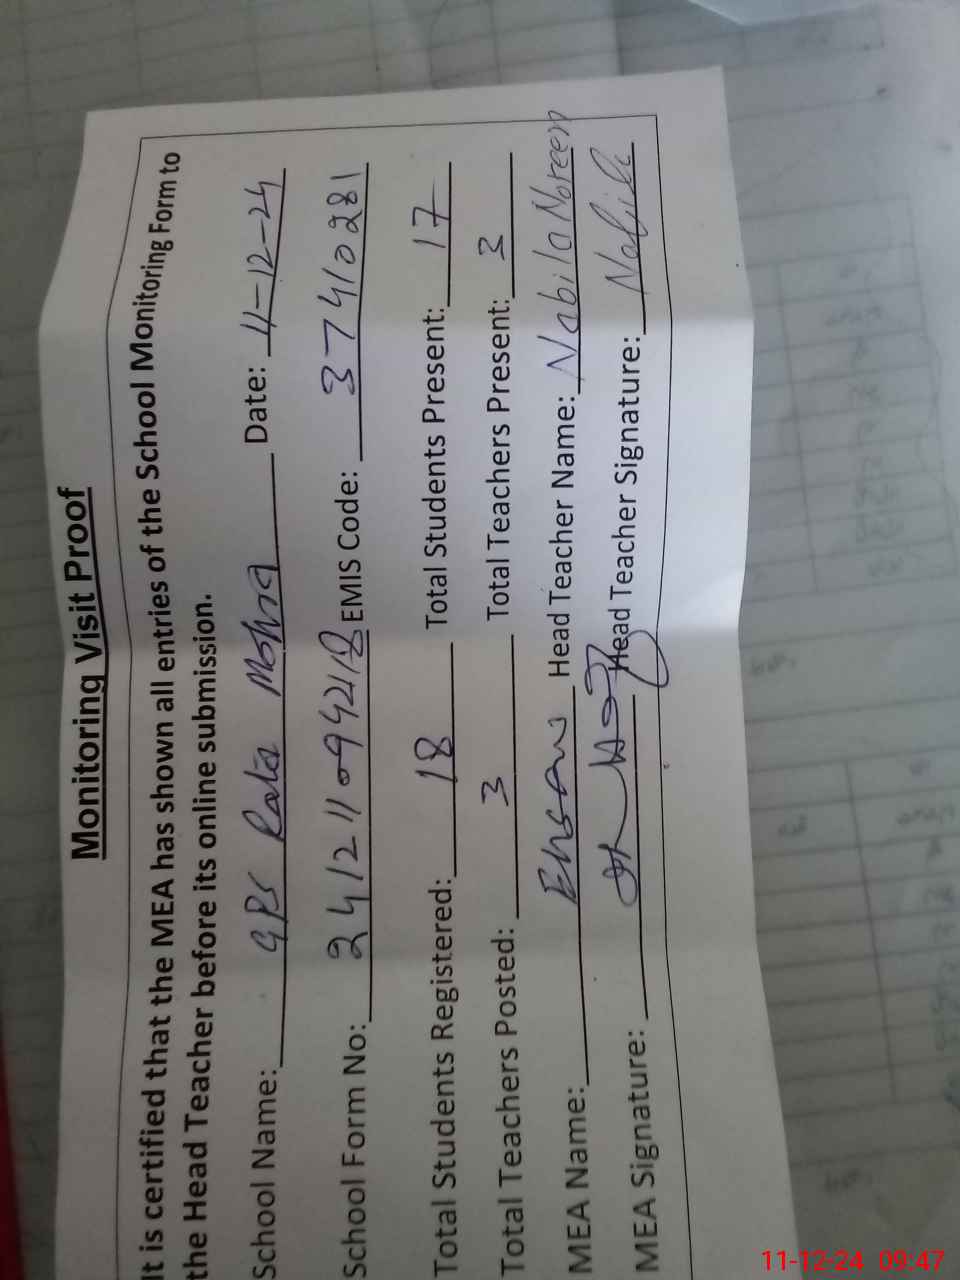 Monitoring Visit Proof
It is certified that the MEA has shown all entries of the School Monitoring Form to
the Head Teacher before its online submission.
School Name: GPS Rata Mohra Date: 11-12-24
School Form No: 241211094218 EMIS Code: 37410281
Total Students Registered: 18 Total Students Present: 17
Total Teachers Posted: 3 Total Teachers Present: 3
MEA Name: Head Teacher Name: Nabila Noreen
MEA Signature: Head Teacher Signature: Nabila
11-12-24 09:47